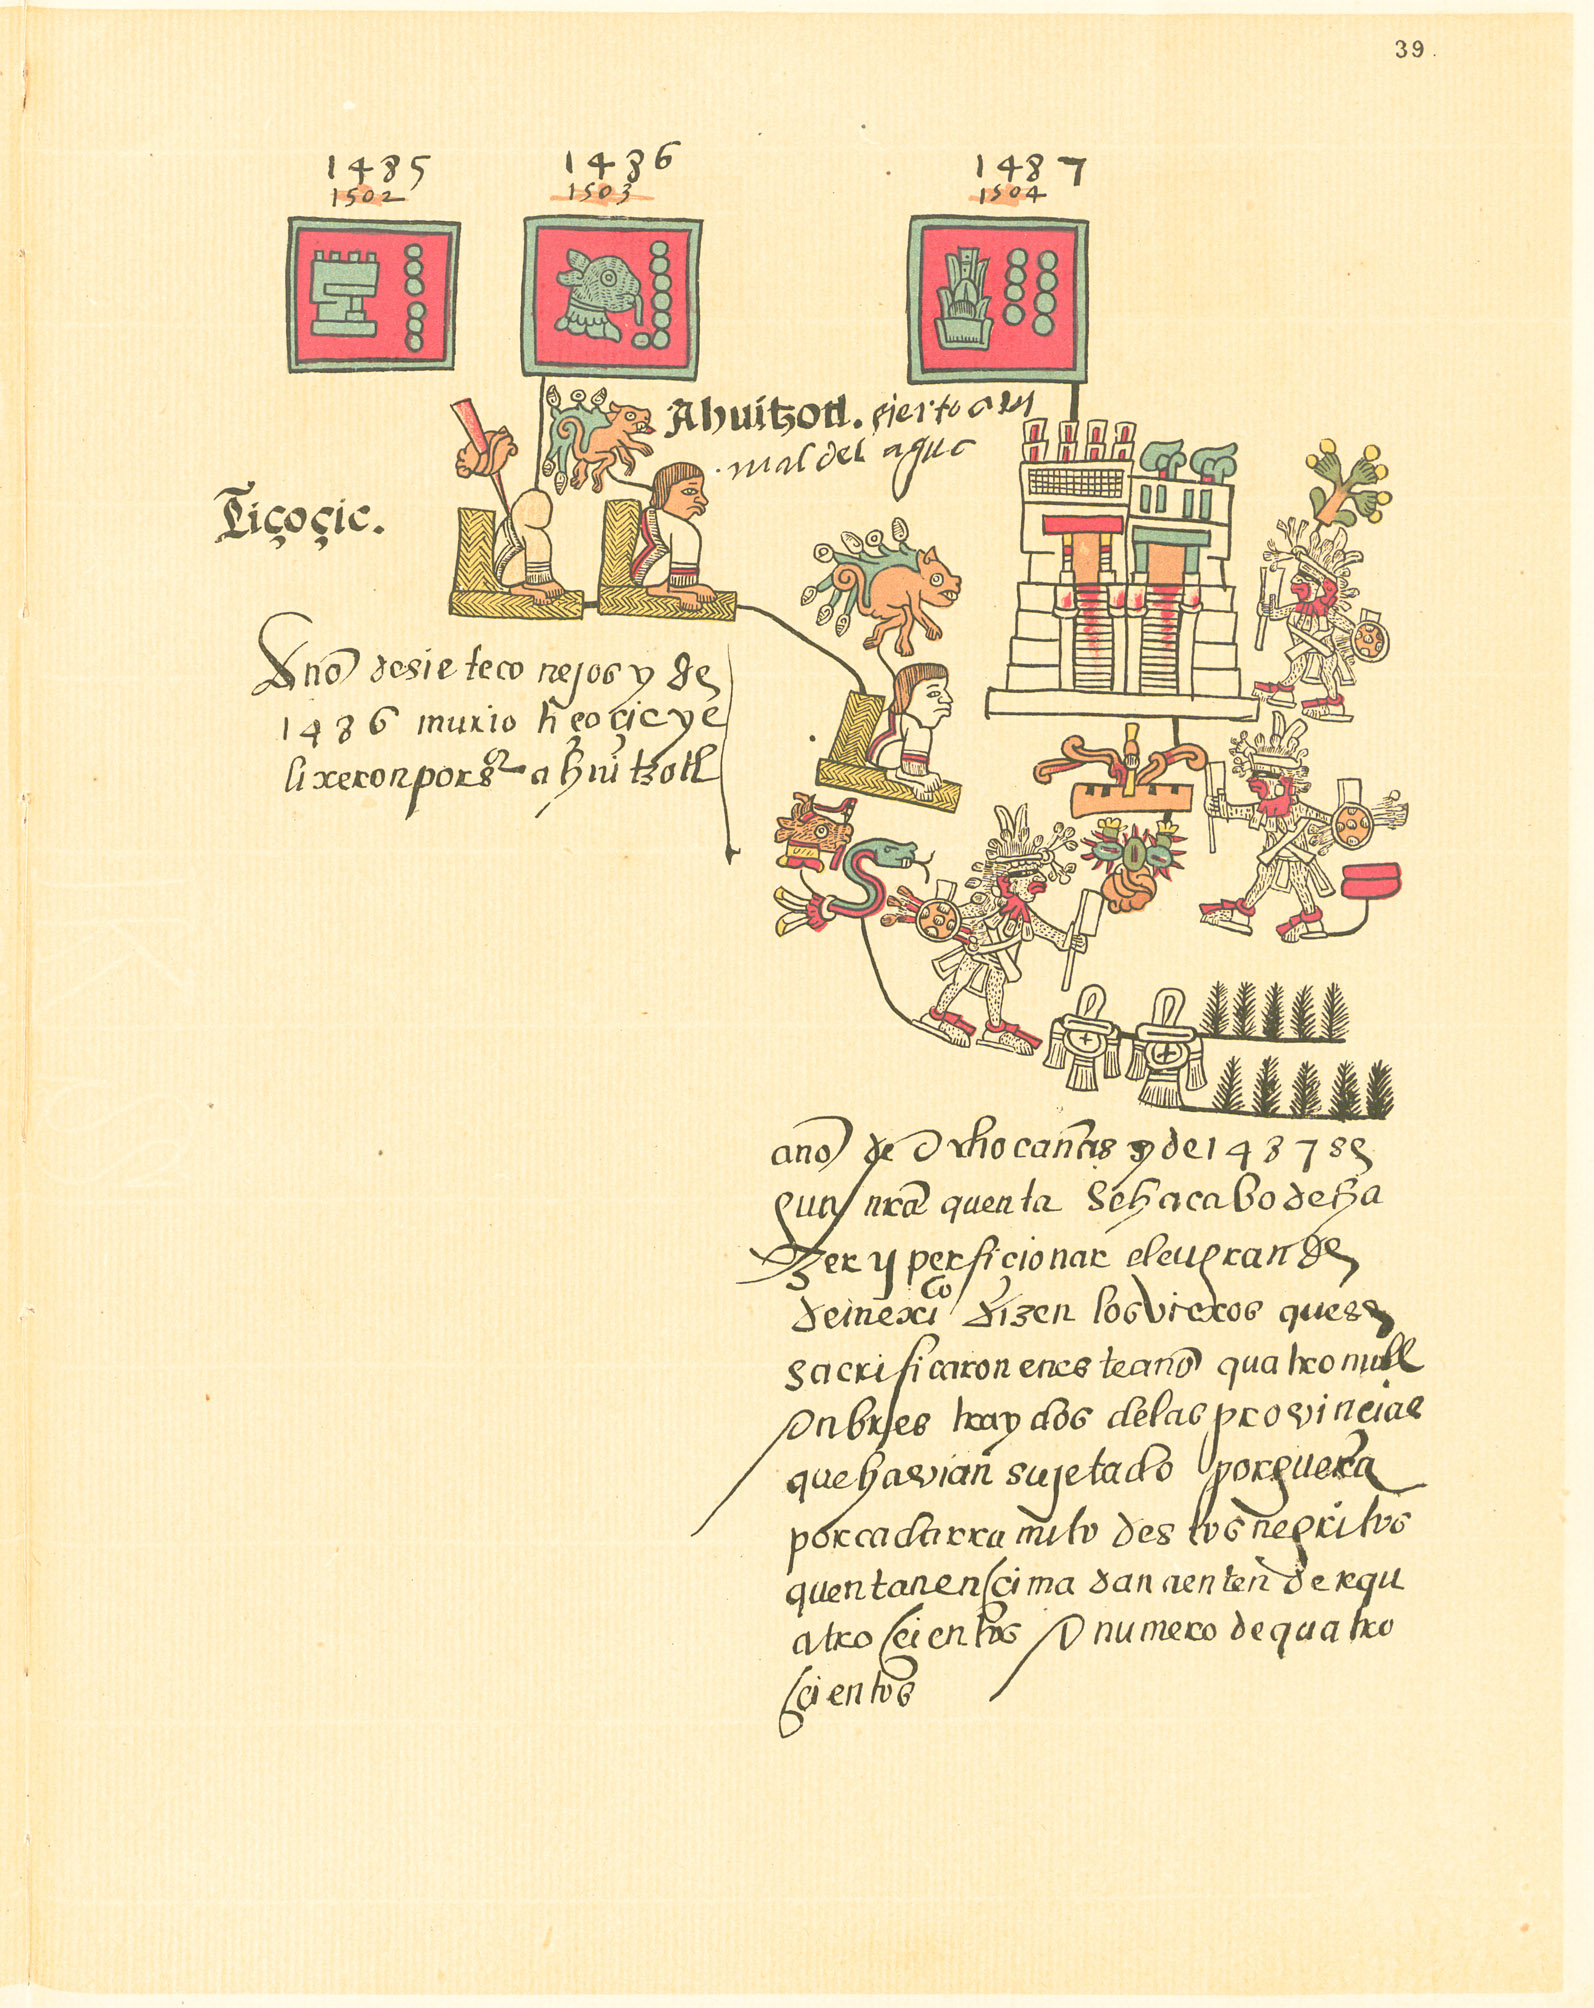 39.
1485
1502
1486
1503
1487
1504
Ahuitzotl. cierto ani
mal del agua
Tiçoçic.
Año de siete conejos y de
1486 murio tiçoçic y e
lixeron por s^r a ahuitzotl
año de ocho cañas y de 1487 se
gun nr̃a quenta se hacabo de ha
zer y perficionar el cu grande
de mexi^co dizen los viexos que se
sacrificaron en este año quatro mill
onbres traydos de las provincias
que havian sujetado por guerra
por cada rramito destos negritos
que estan en çima dan a entender qu
atro çientos o numero de quatro
çientos